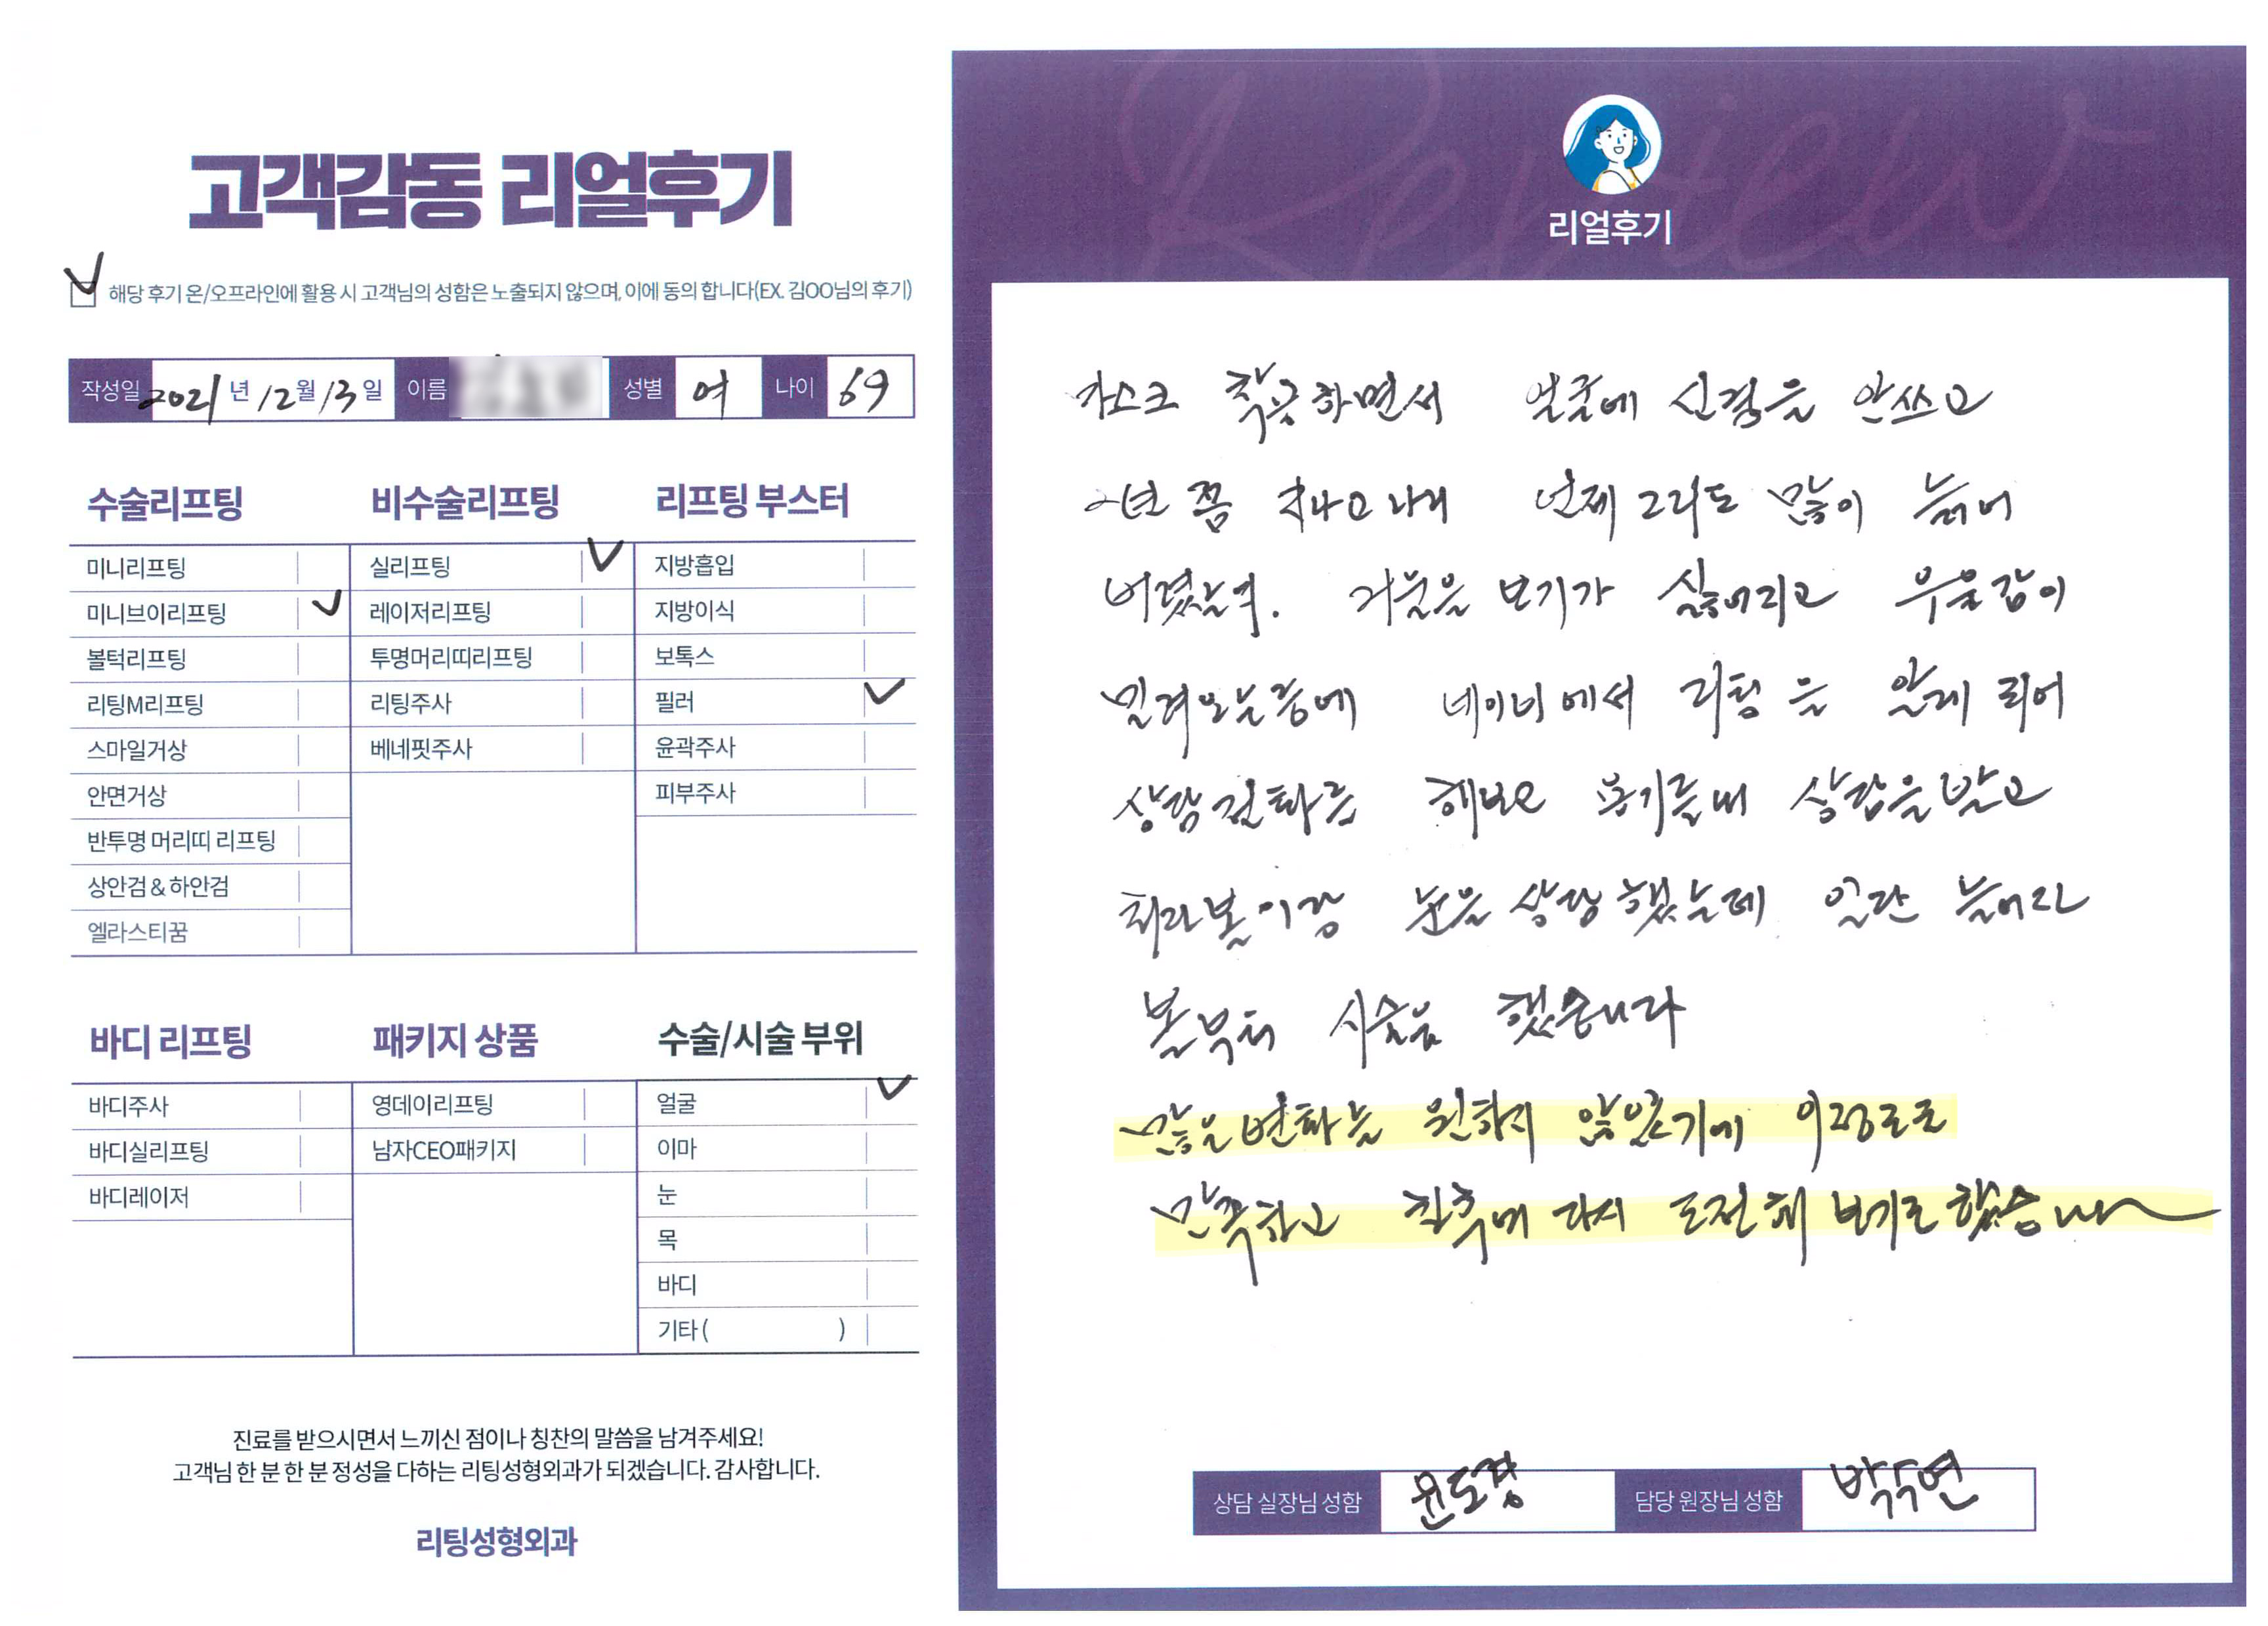 고객감동 리얼후기
해당 후기 온/오프라인에 활용 시 고객님의 성함은 노출되지 않으며, 이에 동의 합니다(EX. 김OO님의 후기)
작성일 2021년 12월 13일 이름 성별 여 나이 69
수술리프팅
미니리프팅
미니브이리프팅
볼턱리프팅
리팅M리프팅
스마일거상
안면거상
반투명 머리띠 리프팅
상안검 & 하안검
엘라스티꿈
비수술리프팅
실리프팅
레이저리프팅
투명머리띠리프팅
리팅주사
베네핏주사
리프팅 부스터
지방흡입
지방이식
보톡스
필러
윤곽주사
피부주사
바디 리프팅
바디주사
바디실리프팅
바디레이저
패키지 상품
영데이리프팅
남자CEO패키지
수술/시술 부위
얼굴
이마
눈
목
바디
기타 ( )
진료를 받으시면서 느끼신 점이나 칭찬의 말씀을 남겨주세요!
고객님 한 분 한 분 정성을 다하는 리팅성형외과가 되겠습니다. 감사합니다.
리팅성형외과
Review
리얼후기
마스크 착용하면서 얼굴에 신경을 안쓰고
2년쯤 지나고나니 언제 그리도 많이 늙어
버렸는지. 거울을 보기가 싫어지고 우울감이
밀려오는중에 네이버에서 리팅을 알게 되어
상담전화를 해보고 용기를내 상담을받고
눈을 상담했는데 일단 늘어진
볼부터 시술을 했습니다
많은변화는 원하지 않았기에 이정도로
만족하고 차후에 다시 도전해 보기로 했습니다
상담 실장님 성함 윤도경 담당 원장님 성함 박수연